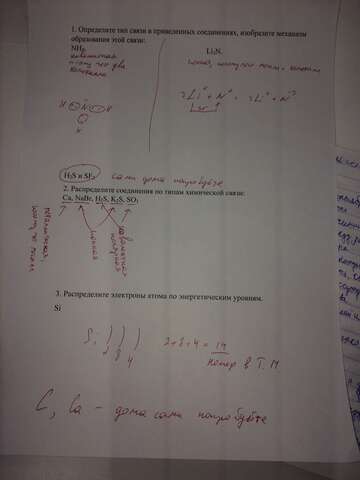 1. Определите тип связи в приведенных соединениях, изобразите механизм
образования этой связи:
NH₃ Li₃N.
ковалентная
потому что два
неметалла
H N H
H
H₂S и SF₆ сами дома попробуйте
2. Распределите соединения по типам химической связи:
Ca, NaBr, H₂S, K₂S, SO₃
металлическая,
ионная
ковалентная
полярная
3. Распределите электроны атома по энергетическим уровням.
Si
) ) ) 2+8+4=14
2 8 4 номер в Т. М
C, Ca - дома сами попробуйте